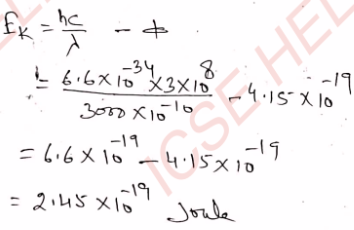 E_K = hc/λ - ϕ
= 6.6×10^-34 ×3×10^8 / 3000×10^-10 - 4.15×10^-19
= 6.6×10^-19 - 4.15×10^-19
= 2.45×10^-19 Joule
ICSE HEL